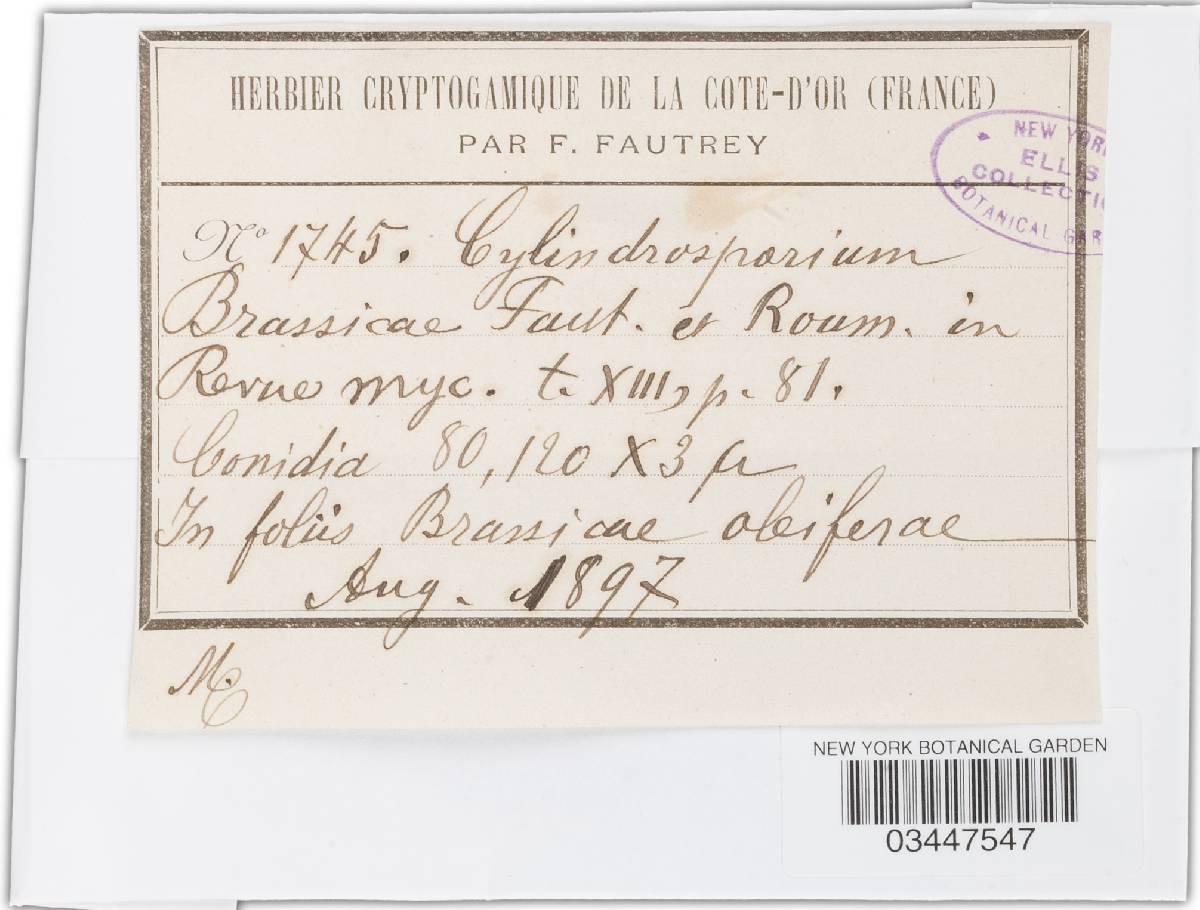 HERBIER CRYPTOGAMIQUE DE LA COTE-D'OR (FRANCE)
PAR F. FAUTREY
NEW YORK
ELLIS
COLLECTIO
BOTANICAL GAR
No 1745. Cylindrosporium
Brassicae Faut. et Roum. in
Revue myc. t. XIII, p. 81.
Conidia 80, 120 X 3 µ
In foliis Brassicae oleiferae
Aug. 1897
NEW YORK BOTANICAL GARDEN
03447547